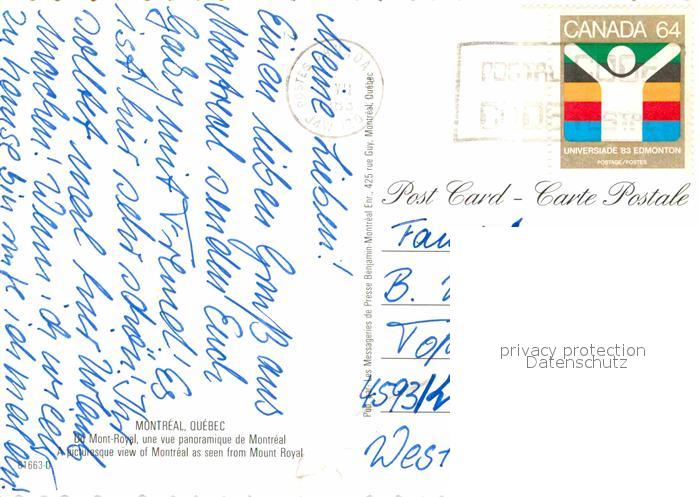 Meine Lieben!
Einen lieben Gruß aus
Montreal senden Euch
Gaby mit Freund! Es
ist hier sehr schön! Ihr
solltet mal hier Urlaub
machen! Wenn ich wieder
zu hause bin muß ich malen!
CANADA 64
UNIVERSIADE '83 EDMONTON
POSTAGE/POSTES
POSTAL CODE
Post Card - Carte Postale
Fam
B.
Top
4593/
West
privacy protection
Datenschutz
Les Messageries de Presse Benjamin-Montréal Enr., 425 rue Guy, Montréal, Québec
MONTRÉAL, QUÉBEC
Du Mont-Royal, une vue panoramique de Montréal
A picturesque view of Montréal as seen from Mount Royal
81663-D